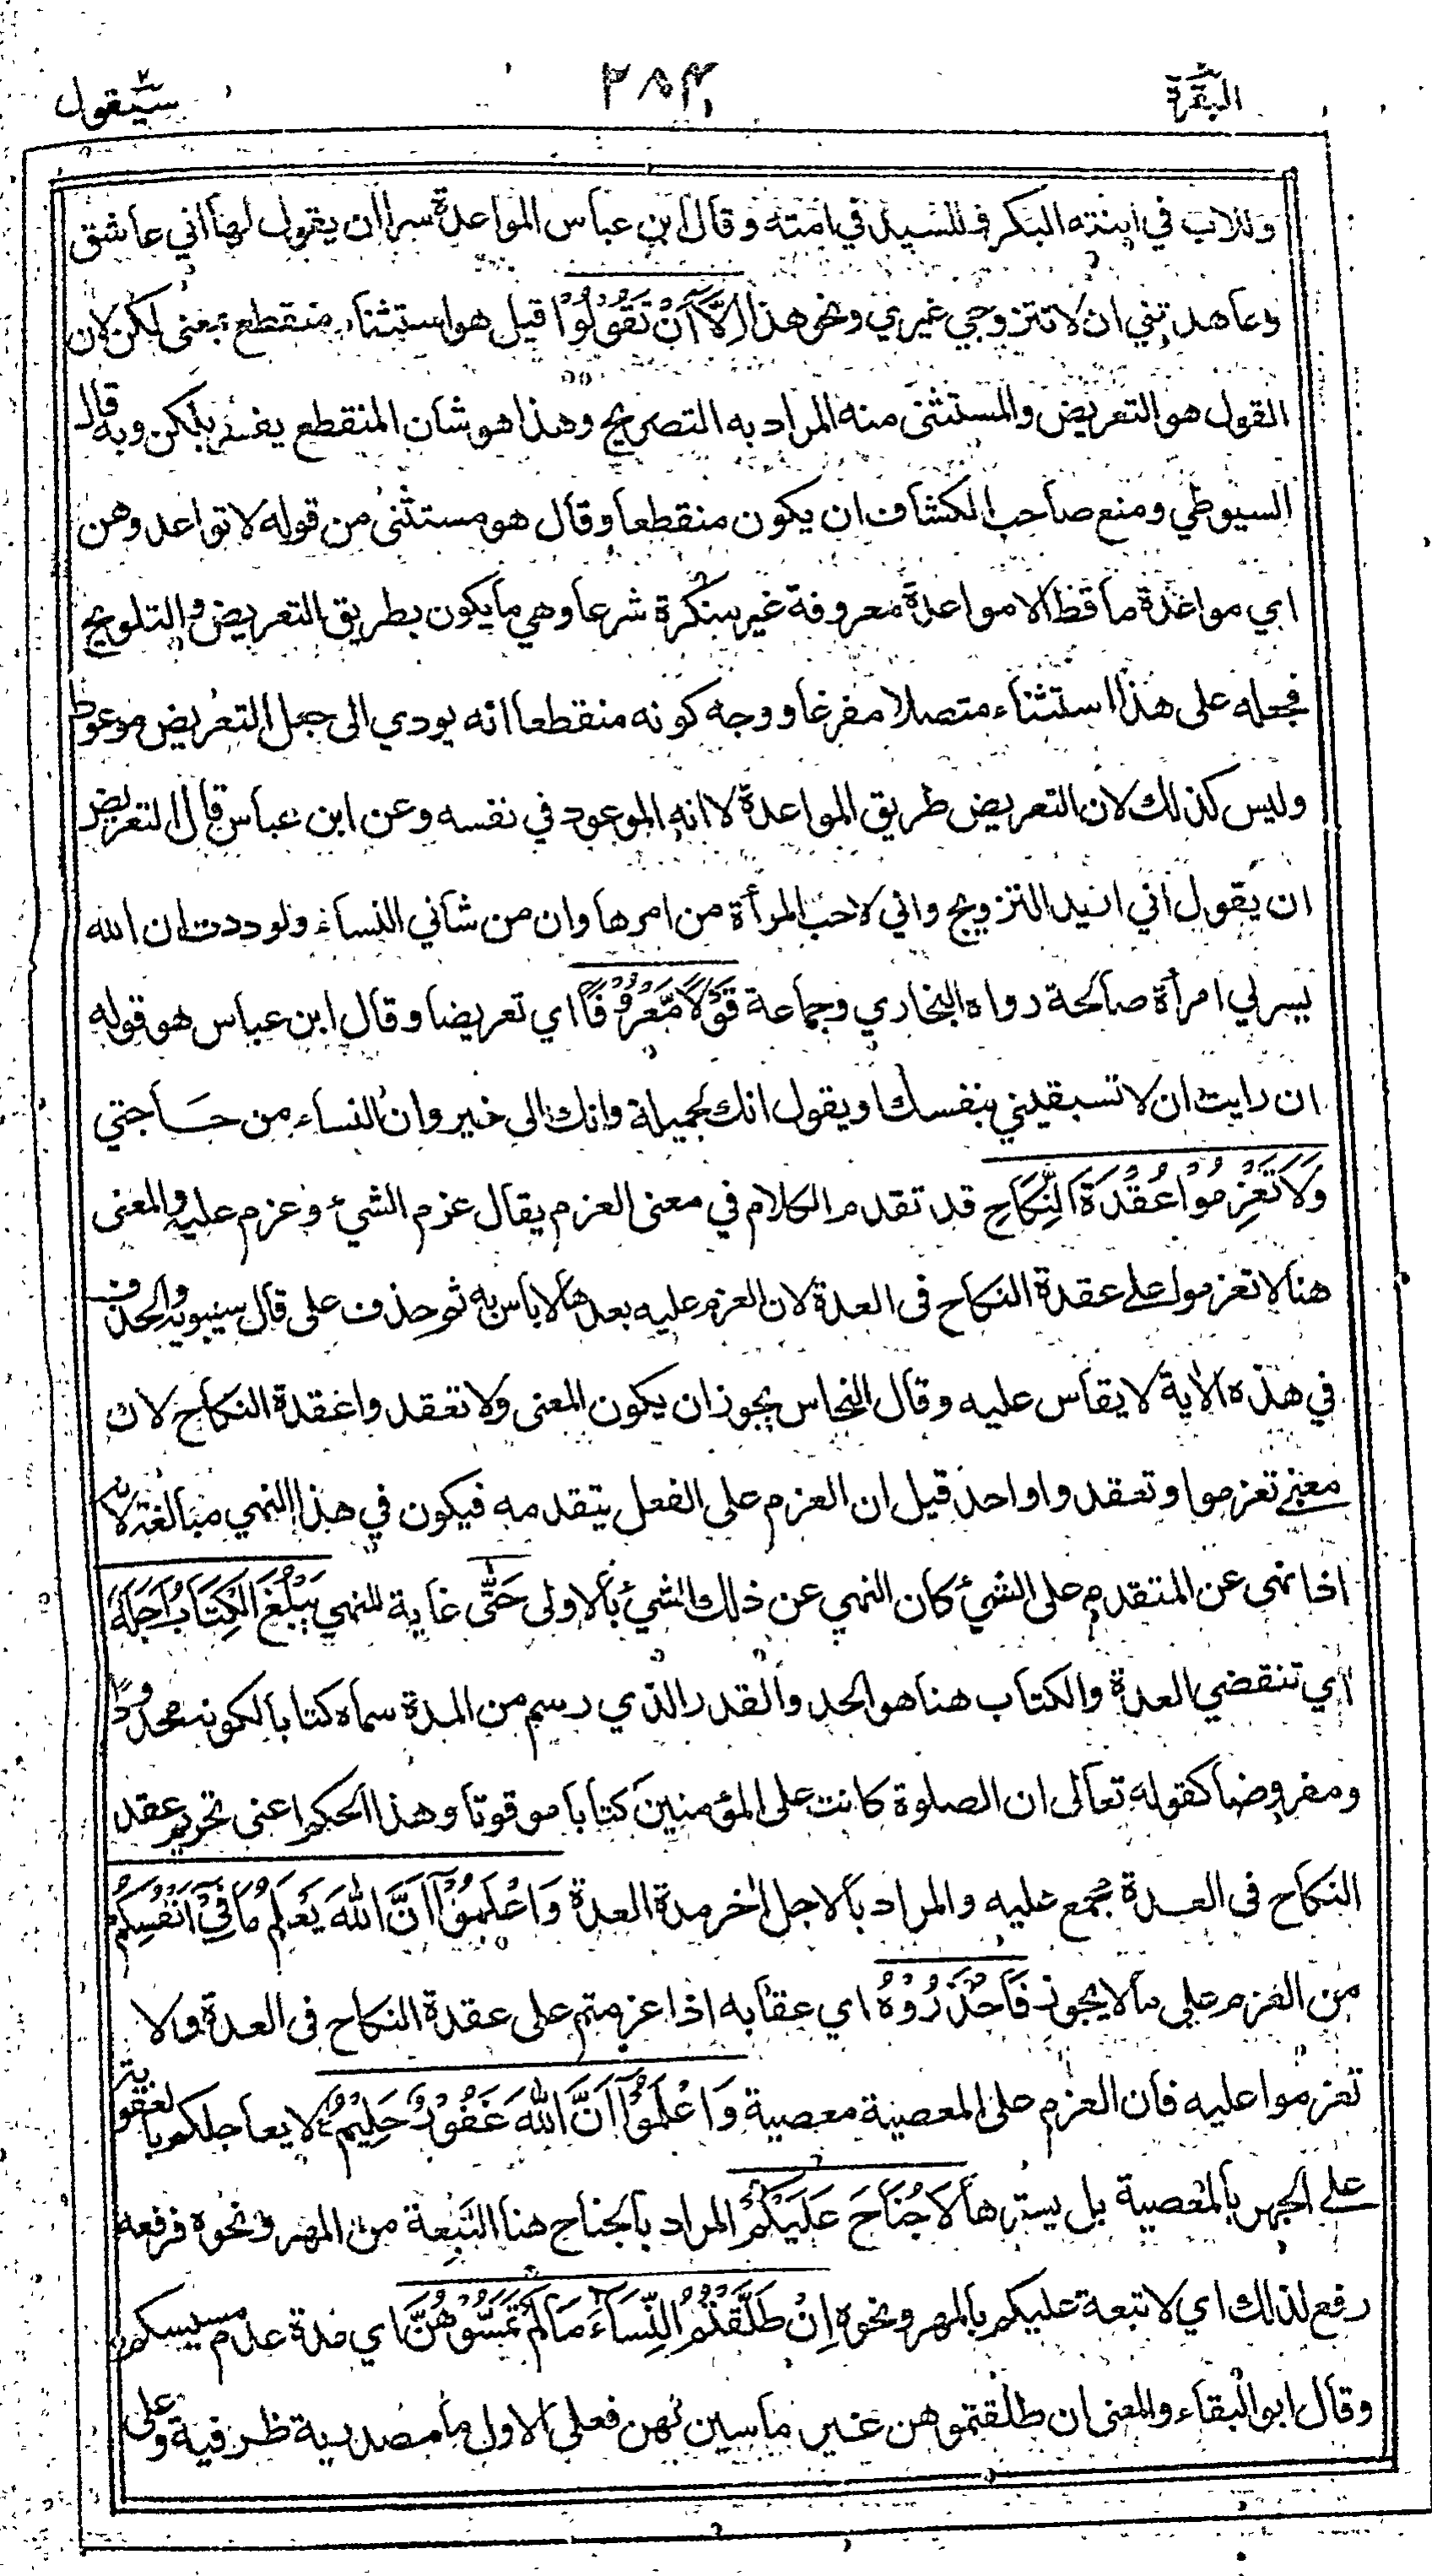 البقرة
٢٨٤
سيقول
وللاب في ابنته البكر وللسيد في امته وقال ابن عباس المواعدة سرا ان يقول لها اني عاشق
وعاهديني ان لا تتزوجي غيري ونحو هذا اِلَّآ اَنْ تَقُوْلُوْا قيل هو استثناء منقطع بمعنى لكن لان
القول هو التعريض والمستثنى منه المراد به التصريح وهذا هو شان المنقطع يفسر بلكن وبه قال
السيوطي ومنع صاحب الكشاف ان يكون منقطعا وقال هو مستثنى من قوله لا تواعدوهن
اي مواعدة ما قط الا مواعدة معروفة غير منكرة شرعا وهي ما يكون بطريق التعريض والتلويح
فجعله على هذا استثناء متصلا مفرغا ووجه كونه منقطعا انه يودي الى جعل التعريض موعودا
وليس كذلك لان التعريض طريق المواعدة لا انه الموعود في نفسه وعن ابن عباس قال التعريض
ان يقول اني اريد التزويج واني لاحب المرأة من امرها وان من شاني النساء ولوددت ان الله
يسر لي امرأة صالحة رواه البخاري وجماعة قَوْلًا مَّعْرُوْفًا اي تعريضا وقال ابن عباس هو قوله
ان رايت ان لا تسبقيني بنفسك او يقول انك لجميلة وانك الى خير وان النساء من حاجتي
وَلَا تَعْزِمُوْا عُقْدَةَ النِّكَاحِ قد تقدم الكلام في معنى العزم يقال عزم الشيء وعزم عليه والمعنى
هنا لا تعزموا على عقدة النكاح فى العدة لان العزم عليه بعدها لا باس به ثم حذف على قال سيبويه والحذف
في هذه الاية لا يقاس عليه وقال النحاس يجوز ان يكون المعنى ولا تعقدوا عقدة النكاح لان
معنى تعزموا وتعقدوا واحد قيل ان العزم على الفعل يتقدمه فيكون في هذا النهي مبالغة لانه
اذا نهى عن المتقدم على الشيء كان النهي عن ذلك الشيء بالاولى حَتّٰى غاية للنهي يَبْلُغَ الْكِتَابُ اَجَلَهٗ
اي تنقضي العدة والكتاب هنا هو الحد والقدر الذي رسم من المدة سماه كتابا لكونه محدودا
ومفروضا كقوله تعالى ان الصلوة كانت على المؤمنين كتابا موقوتا وهذا الحكم اعنى تحريم عقد
النكاح فى العدة مجمع عليه والمراد بالاجل اخر مدة العدة وَاعْلَمُوْٓا اَنَّ اللهَ يَعْلَمُ مَا فِيْٓ اَنْفُسِكُمْ
من العزم على ما لا يجوز فَاحْذَرُوْهُ اي عقابه اذا عزمتم على عقدة النكاح فى العدة ولا
تعزموا عليه فان العزم على المعصية معصية وَاعْلَمُوْٓا اَنَّ اللهَ غَفُوْرٌ حَلِيْمٌ لا يعاجلكم بالعقوبة
على الجهر بالمعصية بل يسترها لَا جُنَاحَ عَلَيْكُمْ المراد بالجناح هنا التَّبِعة من المهر ونحوه فرفعه
رفع لذلك اي لا تبعة عليكم بالمهر ونحوه اِنْ طَلَّقْتُمُ النِّسَآءَ مَا لَمْ تَمَسُّوْهُنَّ اي مدة عدم مسيسكم
وقال ابو البقاء والمعنى ان طلقتموهن غير ماسين لهن فعلى الاول ما مصدرية ظرفية وعلى